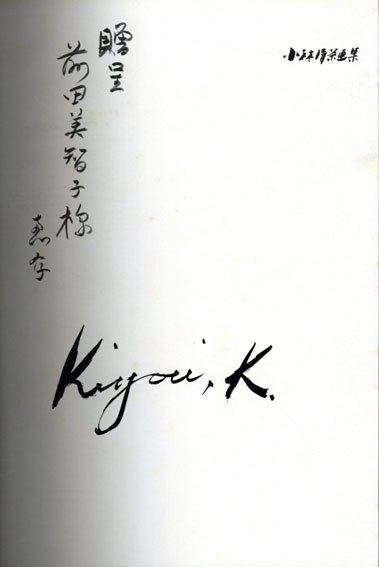 小林清栄画集
贈呈
前田美智子様
恵存
Kiyoei, K.